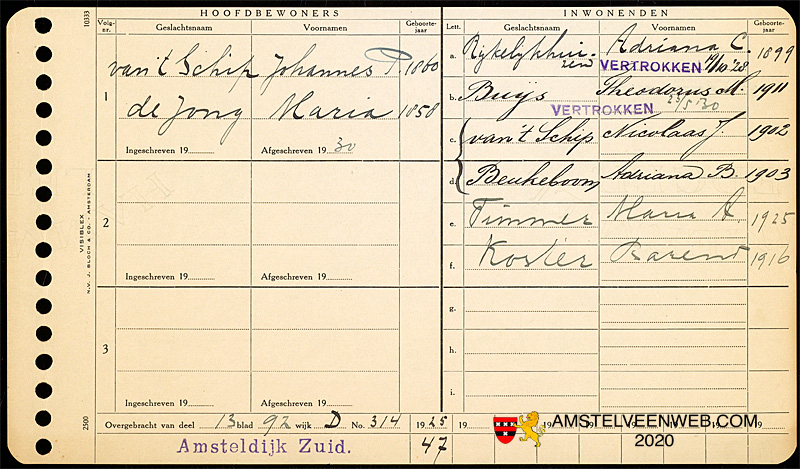 HOOFDBEWONERS
INWONENDEN
10333
Volg-
nr.
Geslachtsnaam
Voornamen
Geboorte-
jaar
Lett.
Geslachtsnaam
Voornamen
Geboorte-
jaar
1
van 't Schip Johannes P. 1860
de Jong Maria 1858
Ingeschreven 19
Afgeschreven 19 30
2
Ingeschreven 19
Afgeschreven 19
3
Ingeschreven 19
Afgeschreven 19
a. Rijkelijkhui-
zen
Adriana C. 1899
VERTROKKEN 19/10 '28
b. Buijs Theodorus M. 1911
VERTROKKEN 23/5 '30
c. van 't Schip Nicolaas J. 1902
d. Beukeboom Adriana B. 1903
e. Timmer Maria A. 1925
f. Koster Barend 1916
g.
h.
i.
VISIBLEX
N.V. J. BLOCH & CO. - AMSTERDAM
2500
Overgebracht van deel 13 blad 92 wijk D No. 314 1925 19 19
47
Amsteldijk Zuid.
AMSTELVEENWEB.COM
2020